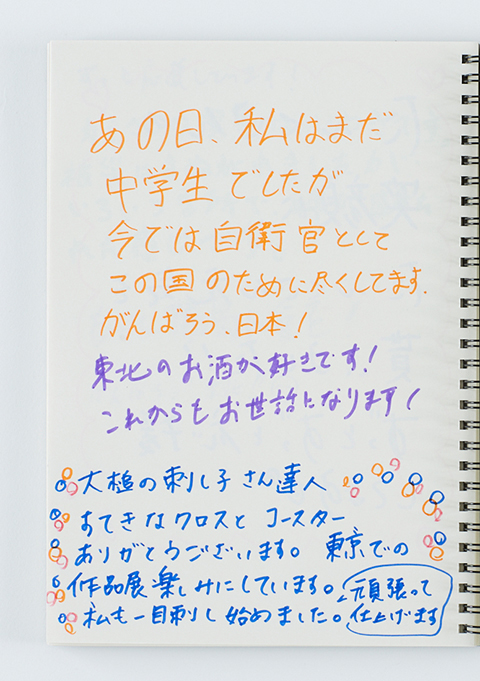 あの日、私はまだ
中学生でしたが
今では自衛官として
この国のために尽くしてます.
がんばろう、日本!
東北のお酒が好きです!
これからもお世話になります!
大槌の刺し子さん達人
すてきなクロスと コースター
ありがとうございます。 東京での
作品展楽しみにしています。
私も一目刺し始めました。
頑張って
仕上げます